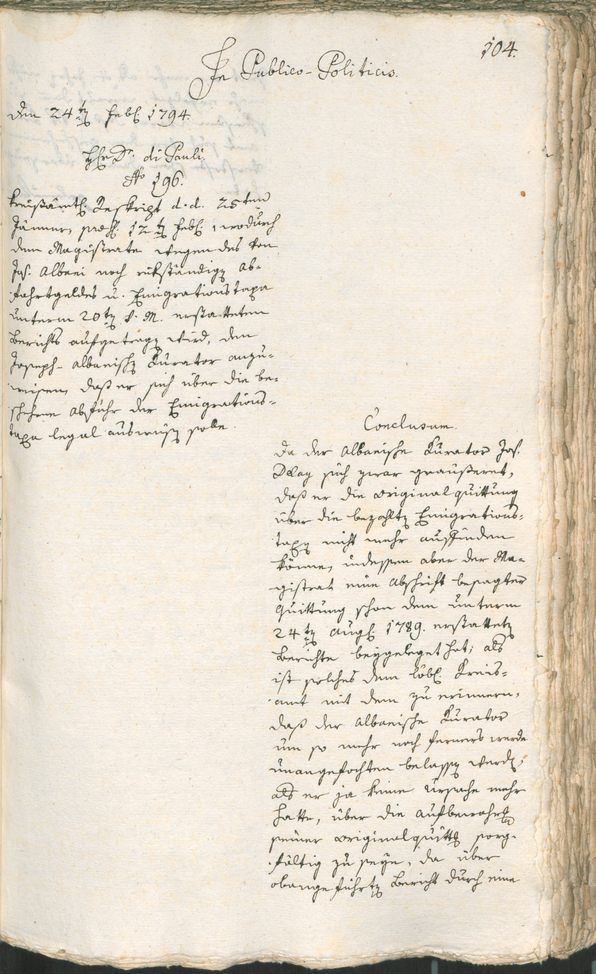 104.
In Publico-Politicis.
den 24ten Febr 1794
H: Dr. di Pauli.
No 196.
Kreisämtl. Reskript d. d. 25ten
Jänner, pres. 12ten Febr, wodurch
dem Magistrate wegen des von
Jos. Albani noch rükständigen Ab-
fahrtgeldes u. Emigrationstaxa
unterm 20ten d. M. erstatteten
Berichts aufgetragen wird, den
Joseph-Albanischen Kurator anzu-
weisen, daß er sich über die be-
schehene Abfuhr der Emigrations-
taxa legal ausweisen solle.
Conclusum.
Da der Albanische Kurator Jos.
sich zwar geäußeret,
daß er die originalquittung
über die bezahlte Emigrations-
taxe nicht mehr auffinden
könne, indessen aber der Ma-
gistrat eine Abschrift besagter
Quittung schon dem unterm
24ten Augst 1789. erstatteten
Berichte beygeleget hat; als
ist solches dem löbl. Kreis-
amt mit dem zu erinnern,
daß der Albanische Kurator
um so mehr noch ferners werde
unangefochten belassen werden,
als er ja keine Ursache mehr
hatte, über die Aufbewahrung
seiner originalquittung sorg-
fältig zu seyn, da über
obangeführten Bericht durch eine